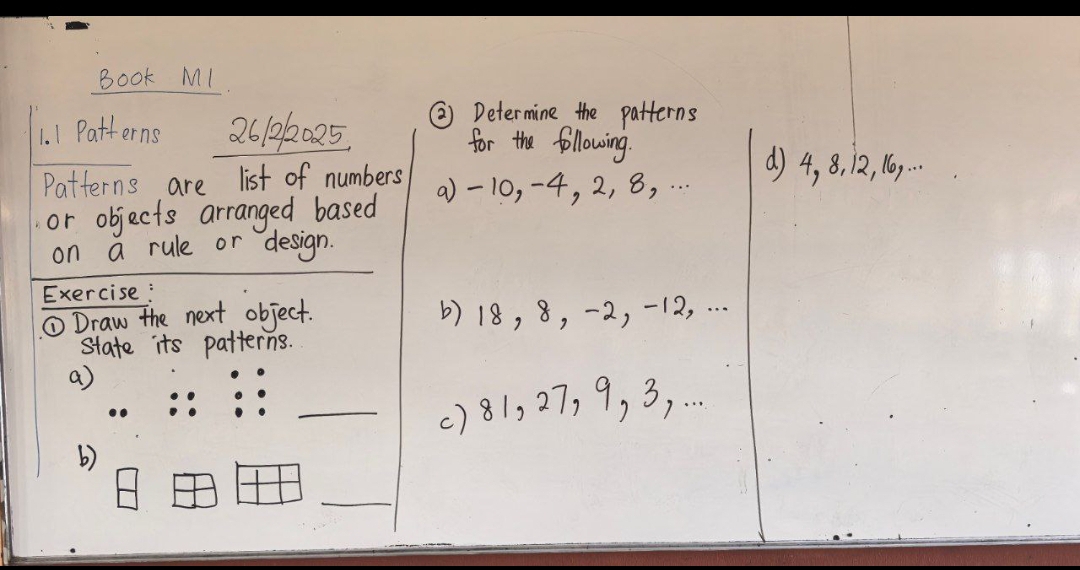 Book M1
1.1 Patterns
26/2/2025
Patterns are list of numbers
or objects arranged based
on a rule or design.
Exercise:
① Draw the next object.
State its patterns.
a)
b)
② Determine the patterns
for the following.
a) -10, -4, 2, 8, ...
b) 18, 8, -2, -12, ...
c) 81, 27, 9, 3, ...
d) 4, 8, 12, 16, ...